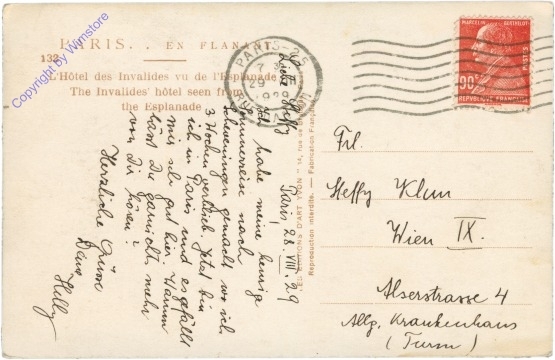 PARIS . . EN FLANANT
132
L'Hôtel des Invalides vu de l'Esplanade
The Invalides' hôtel seen from
the Esplanade
Copyright by Wimstore
PARIS-25
29
MARCELIN BERTHELOT
POSTES
90c
REPUBLIQUE FRANÇAISE
Paris 28.VIII.29
Liebe Steffy
Ich habe meine heurige
Sommerreise nach
Scheveningen gemacht wo ich
3 Wochen verblieb. Jetzt bin
ich in Paris und es gefällt
mir sehr gut hier. Warum
lässt Du garnichts mehr
von Dir hören?
Herzliche Grüsse
Deine
Helly
LES EDITIONS D'ART "YVON" 14, rue
Reproduction interdite. — Fabrication Française
Frl.
Steffy Klun
Wien IX.
Alserstrasse 4
Allg. Krankenhaus
(Turm)